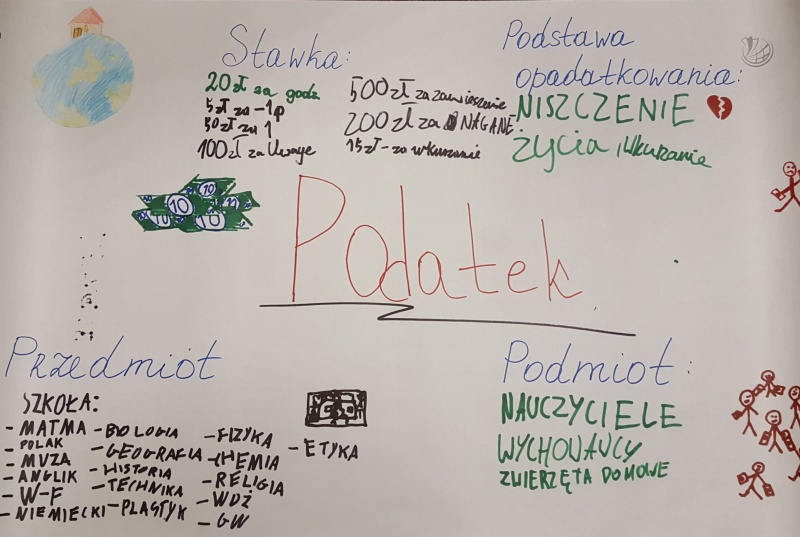 Stawka:
20zł za godz
5zł za -1p
50zł za 1
100zł za Uwagę
500zł za zawieszenie
200zł za NAGANE
15zł - za wkurzanie
Podstawa
opadatkowania:
NISZCZENIE
życia, Wkurzanie
10
10
10
10
Podatek
Przedmiot
SZKOŁA:
- MATMA
- POLAK
- MUZA
- ANGLIK
- W-F
- NIEMIECKI
- BIOLOGIA
- GEOGRAFIA
- HISTORIA
- TECHNIKA
- PLASTYK
- FIZYKA
- CHEMIA
- RELIGIA
- WDŻ
- GW
- ETYKA
Podmiot:
NAUCZYCIELE
WYCHOWAWCY
ZWIERZĘTA DOMOWE